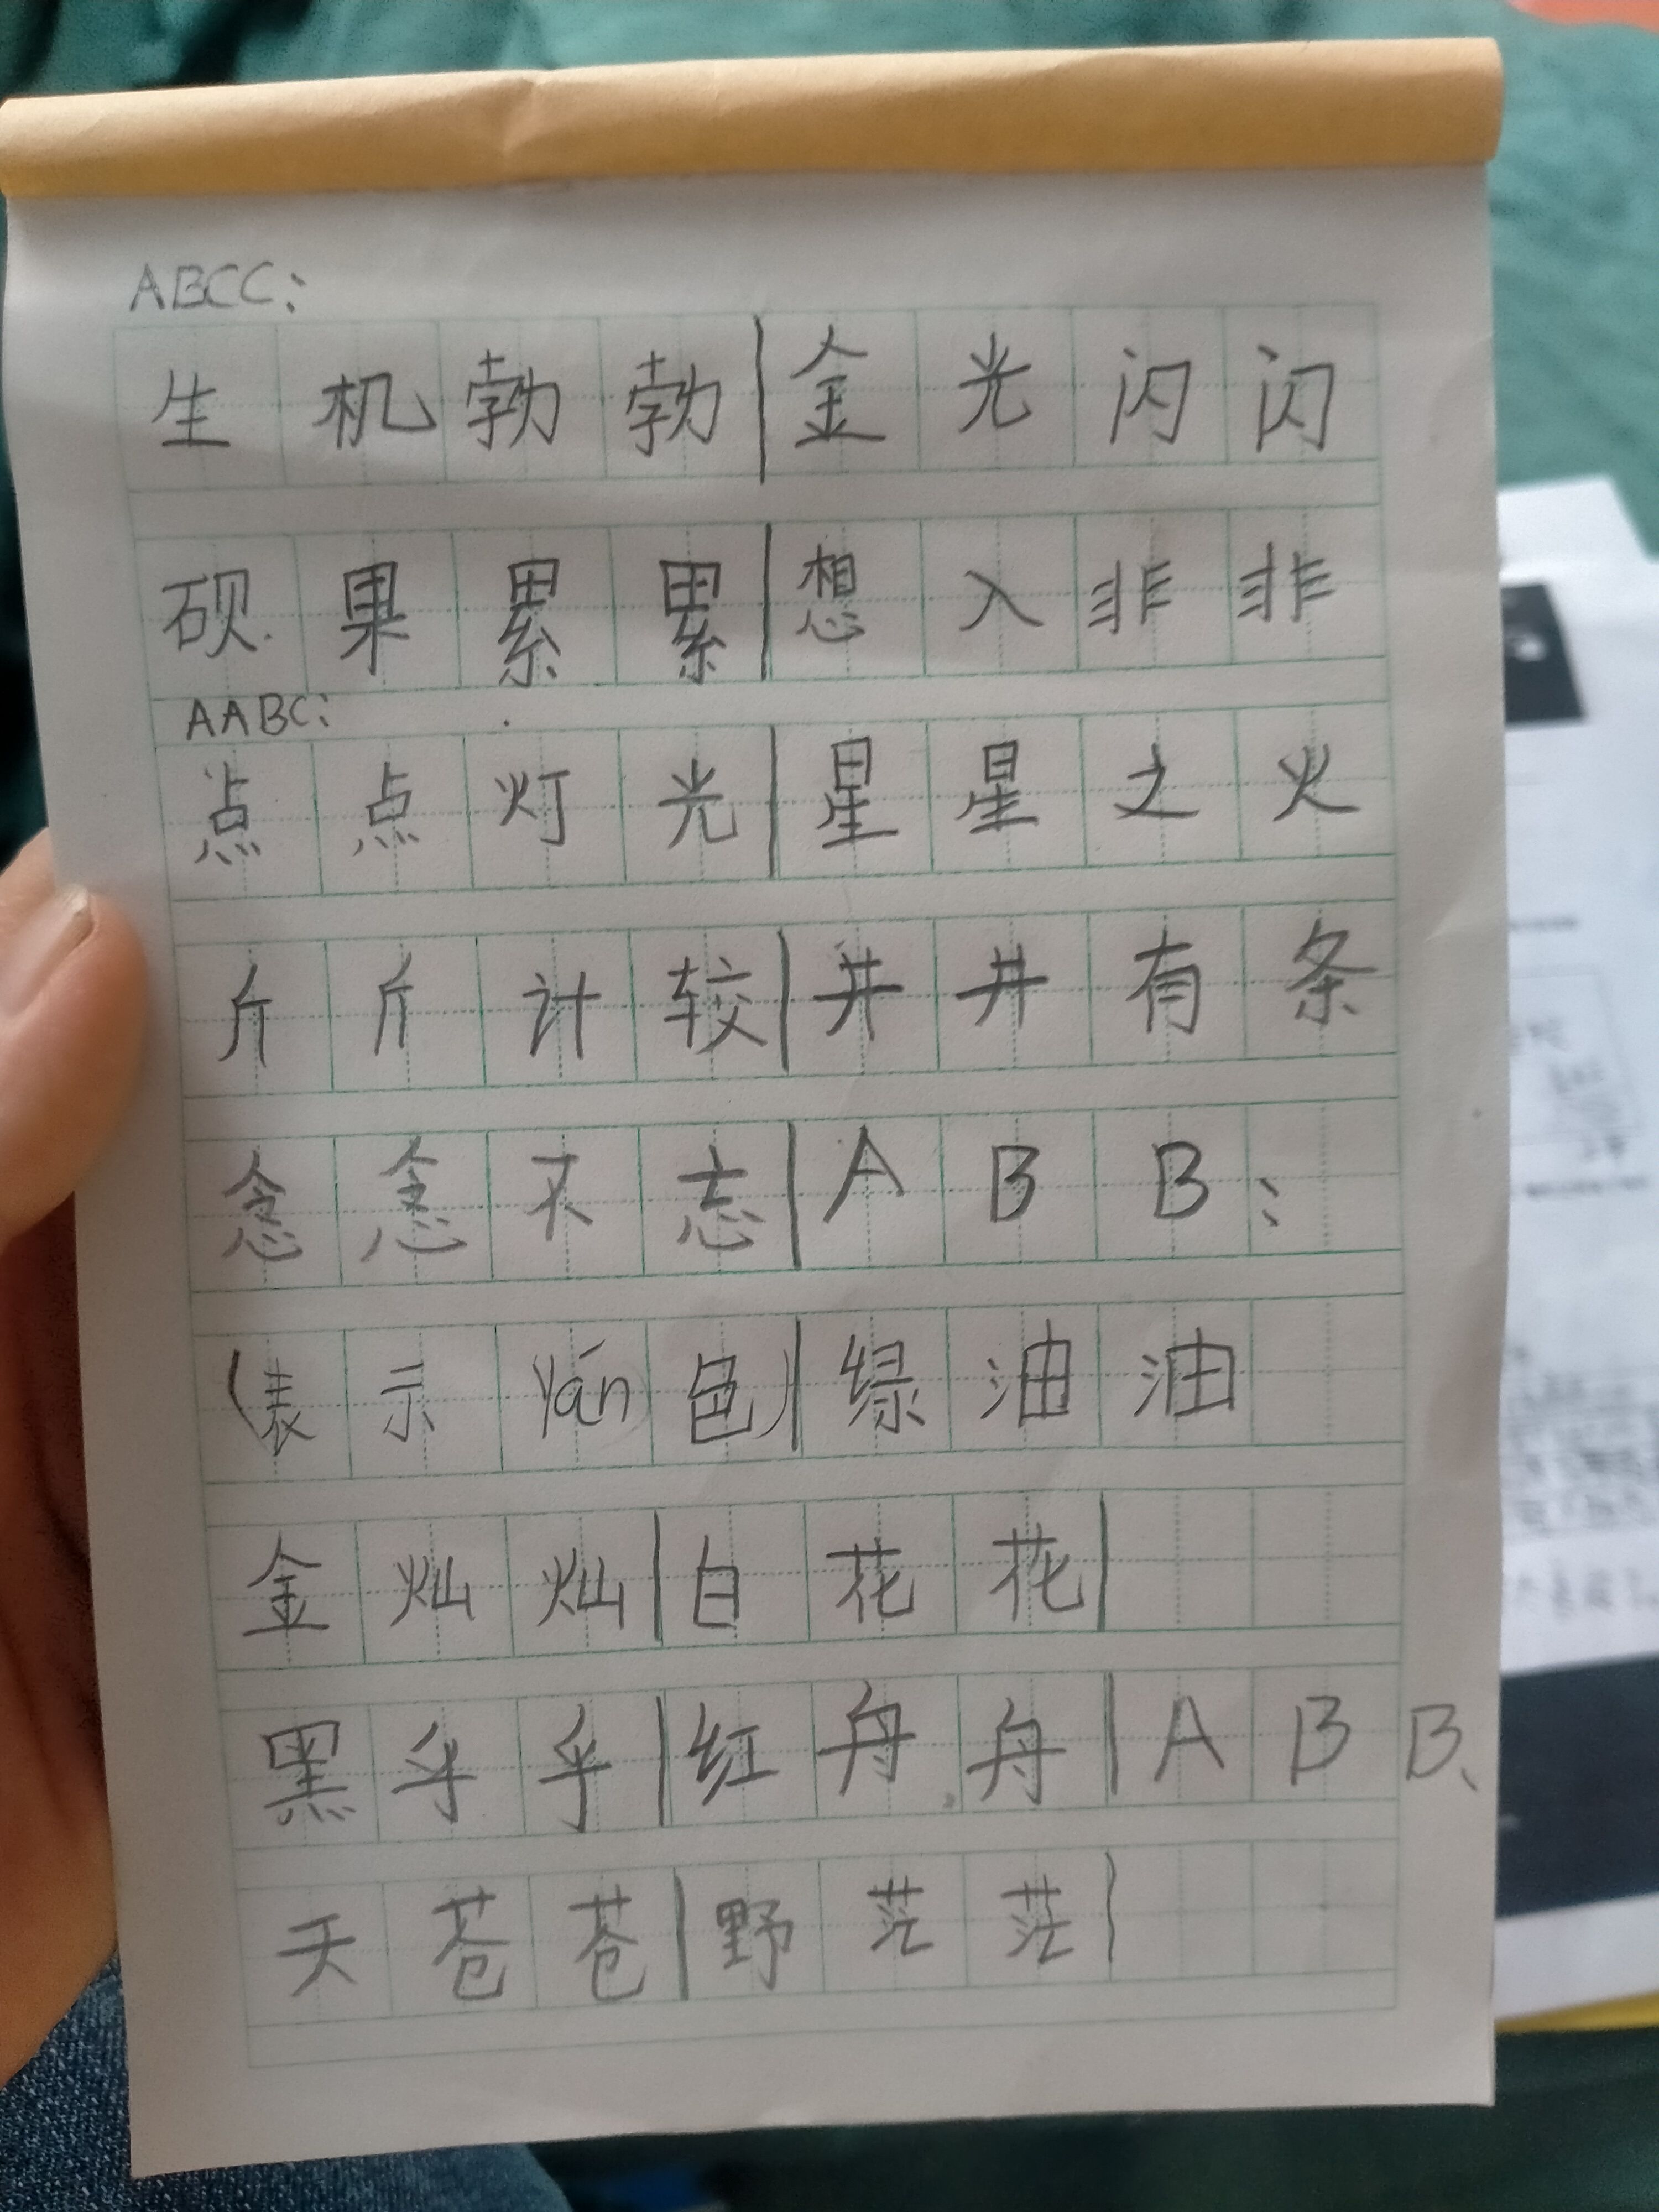 ABCC:
生机勃勃|金光闪闪
硕果累累|想入非非
AABC:
点点灯光|星星之火
斤斤计较|井井有条
念念不忘|ABB:
(表示yán色)|绿油油
金灿灿|白花花|
黑乎乎|红舟舟|ABB、
天苍苍|野茫茫|